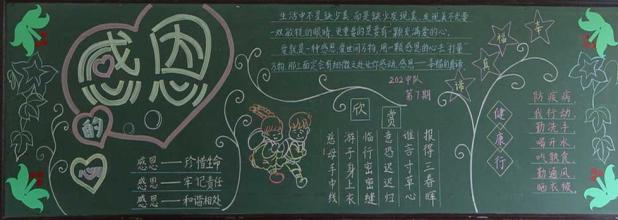 感恩
的
心
感恩——珍惜生命
感恩——牢记责任
感恩——和谐相处
生活中不是缺少美,而是缺少发现美,发现美不光要
一双敏锐的眼睛,更重要的是要有一颗友满爱的心。
爱就是一种感恩,爱世间万物,用一颗感恩的心去打量
万物,那上面定会有细微之处让你感动,感恩一
幸福的真谛
202中队
第7期
欣赏
慈母手中线
游子身上衣
临行密密缝
意恐迟迟归
谁言寸草心
报得三春晖
健康行
防疾病
我行动
勤洗手
喝开水
吃熟食
勤通风
晒衣候